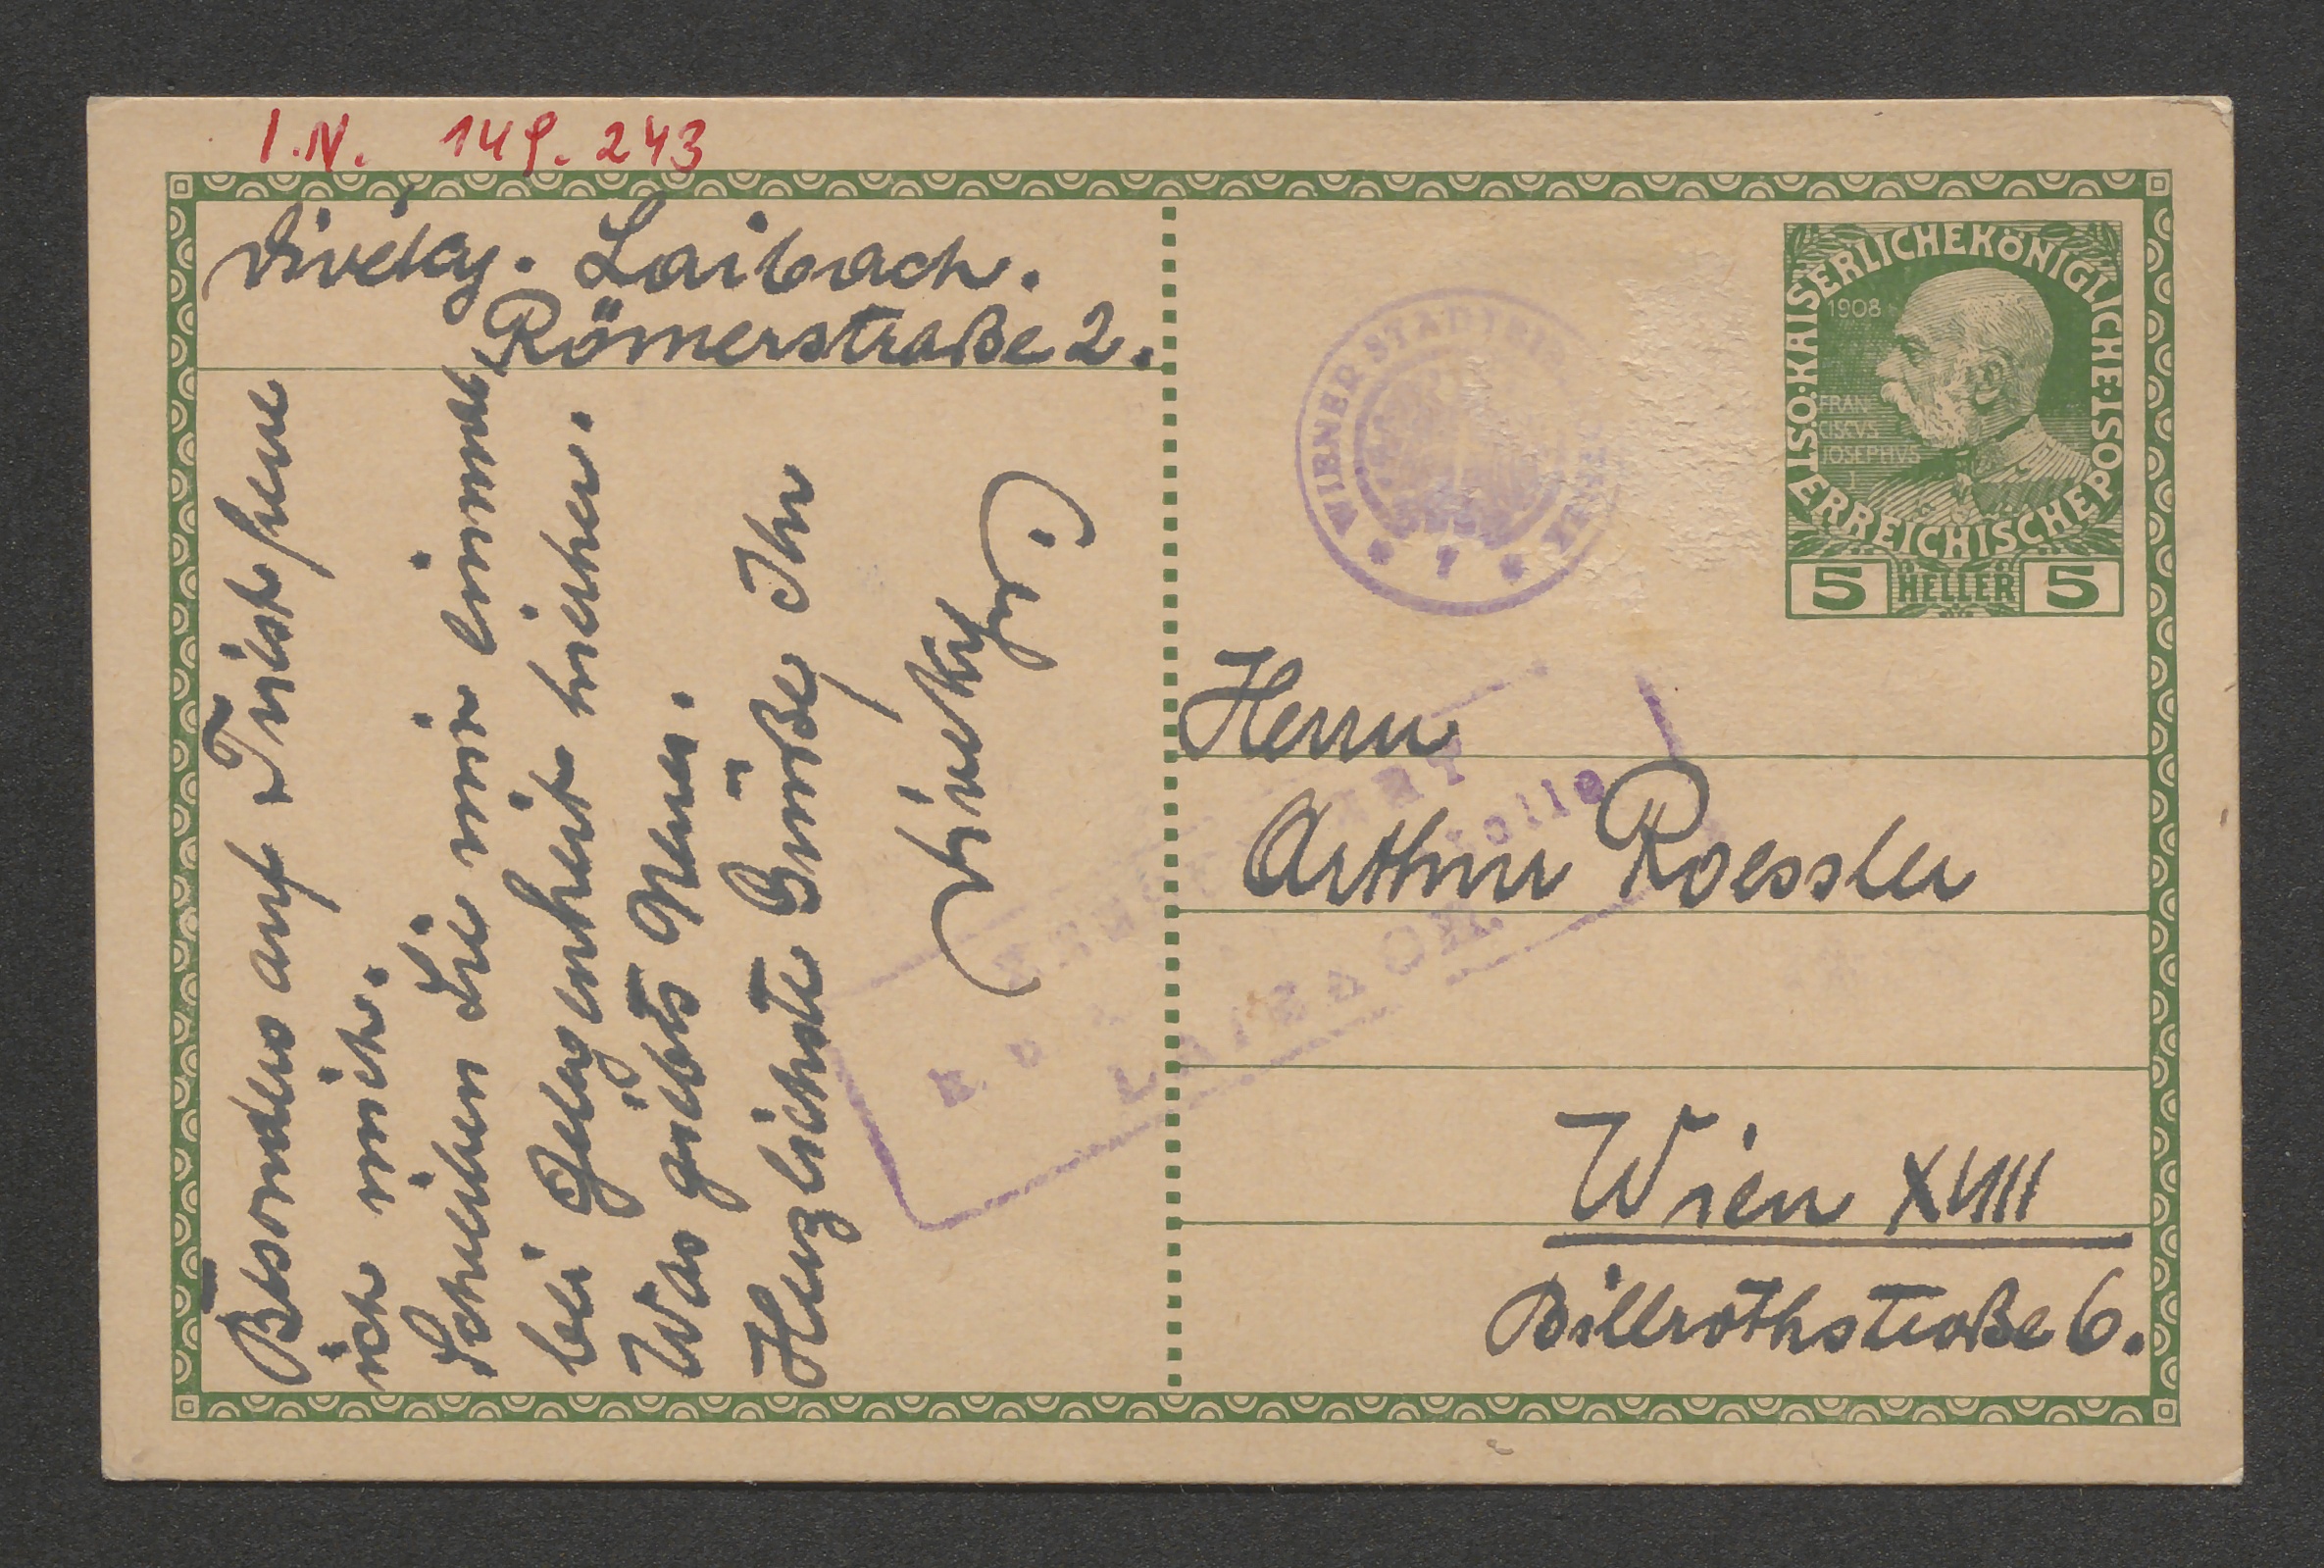 I.N. 149.243
Divéky. Laibach.
Römerstraße 2.
Besonders auf Triest freue
ich mich.
Schreiben Sie mir einmal
bei Gelegenheit hieher.
Was giebts Neues.
Herzlichste Grüße Ihr
Divéky
WIENER STADTBIBLIOTHEK
* 7 *
KAISERLICHEKÖNIGLICHE
ÖSTERREICHISCHEPOST
1908
FRAN
CISCVS
JOSEPHVS
I
5 HELLER 5
ZENSURIERT
LAIBACH
Herrn
Arthur Roessler
Wien XVIII
Billrothstraße 6.